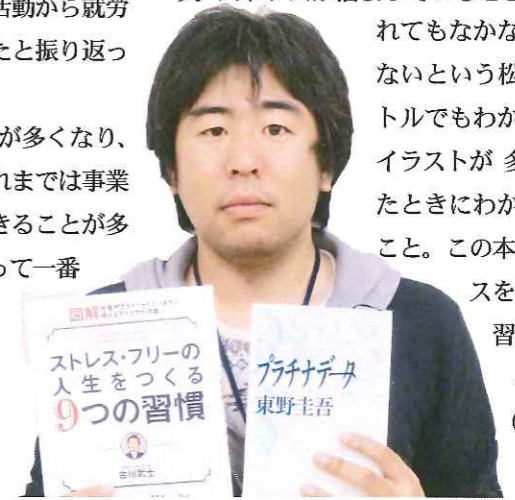 活動から就労
たと振り返っ
が多くなり、
れまでは事業
きることが多
って一番
れてもなかな
ないという松
トルでもわか
イラストが 多
たときにわか
こと。この本
スを
習
図解
ストレス・フリーの
人生をつくる
9つの習慣
古川武士
プラチナデータ
東野圭吾